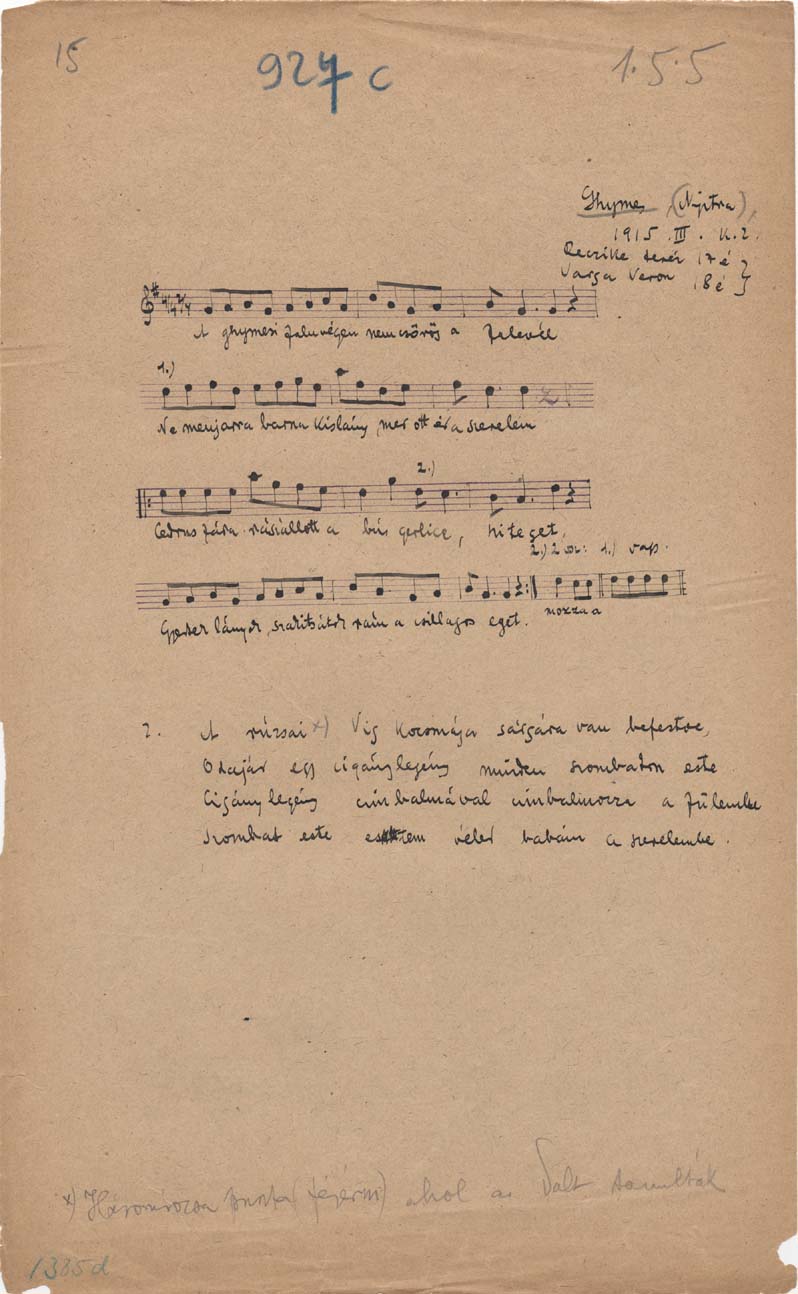 15
927 c
1.5.5
Ghymes (Nyitra),
1915. III. K.Z.
Reczike Teréz 17 é
Varga Veron 18 é
A ghymesi falu végen nem csörög a falevél
1.)
Ne menj arra barna kislány, mer ott ér a szerelem
2.)
Cedrus fára rászállott a bús gerlice,
2.) 2 sor: 1.) vagy
mozza a
lányok, a csillagos eget.
2. A rúzsai x) Vig Kocsmája sárgára van befestve,
Odajár egy cigánylegény minden szombaton este
Cigánylegény cimbalmával cimbalmozza a fülembe
Szombat este estem véled babám a szerelembe.
x) Háromrózsa puszta (fejérm) ahol a Dalt tanulták
1385d